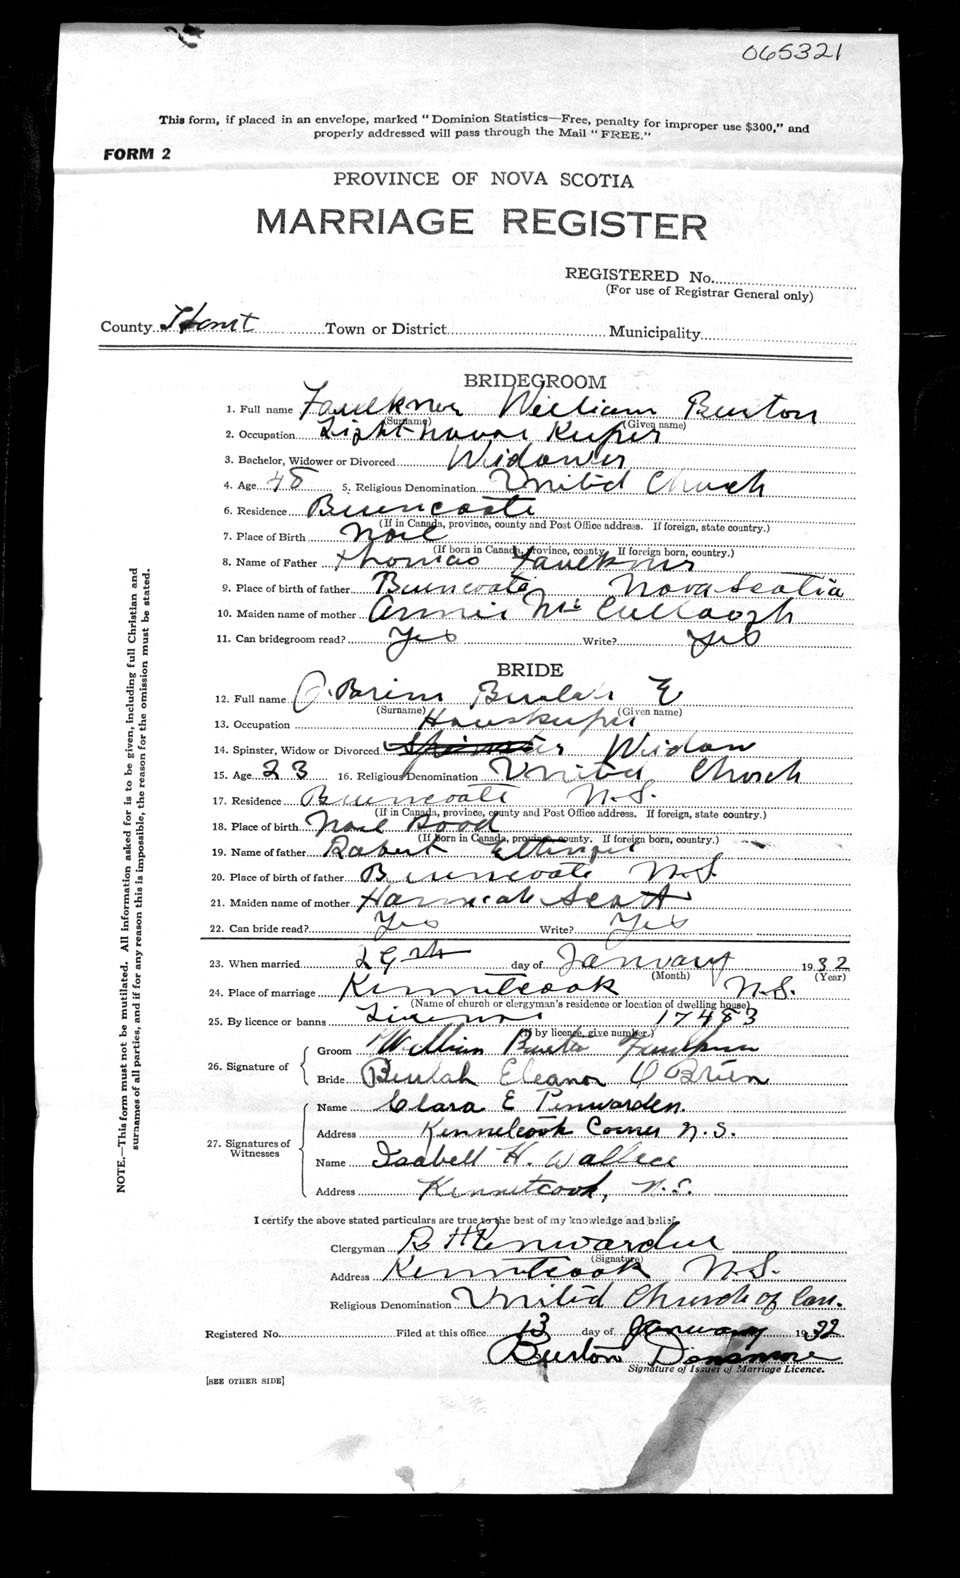 065321
This form, if placed in an envelope, marked "Dominion Statistics—Free, penalty for improper use $300," and
properly addressed will pass through the Mail "FREE."
FORM 2
PROVINCE OF NOVA SCOTIA
MARRIAGE REGISTER
REGISTERED No.
(For use of Registrar General only)
County Hant Town or District Municipality
BRIDEGROOM
1. Full name Faulkner William Burton
(Surname) (Given name)
2. Occupation Light-house Keeper
3. Bachelor, Widower or Divorced Widower
4. Age 48 5. Religious Denomination United Church
6. Residence Burncoate
(If in Canada, province, county and Post Office address. If foreign, state country.)
7. Place of Birth Noel
(If born in Canada, province, county. If foreign born, country.)
8. Name of Father Thomas Faulkner
9. Place of birth of father Burncoate Nova Scotia
10. Maiden name of mother Annie McCullough
11. Can bridegroom read? Yes Write? Yes
BRIDE
12. Full name O'Brien Beulah E
(Surname) (Given name)
13. Occupation Housekeeper
14. Spinster, Widow or Divorced Widow
15. Age 23 16. Religious Denomination United Church
17. Residence Burncoate N.S.
(If in Canada, province, county and Post Office address. If foreign, state country.)
18. Place of birth Noel Road
(If born in Canada, province, county. If foreign born, country.)
19. Name of father Robert Ettinger
20. Place of birth of father Burncoate N.S.
21. Maiden name of mother Hannah Scott
22. Can bride read? Yes Write? Yes
23. When married 29th day of January 1932
(Month) (Year)
24. Place of marriage Kennetcook N.S.
(Name of church or clergyman's residence or location of dwelling house)
25. By licence or banns 17483
(If by licence, give number.)
26. Signature of
Groom William Burton Faulkner
Bride Beulah Eleanor O'Brien
27. Signatures of Witnesses
Name Clara E Penwarden.
Address Kennetcook Corner N.S.
Name Isabell H. Wallace
Address Kennetcook, N.S.
I certify the above stated particulars are true to the best of my knowledge and belief.
Clergyman B H Penwarden
(Signature)
Address Kennetcook N.S.
Religious Denomination United Church of Can.
Registered No. Filed at this office 13 day of January 1932
Burton Densmore
Signature of Issuer of Marriage Licence.
[SEE OTHER SIDE]
NOTE.—This form must not be mutilated. All information asked for is to be given, including full Christian and
surnames of all parties, and if for any reason this is impossible, the reason for the omission must be stated.